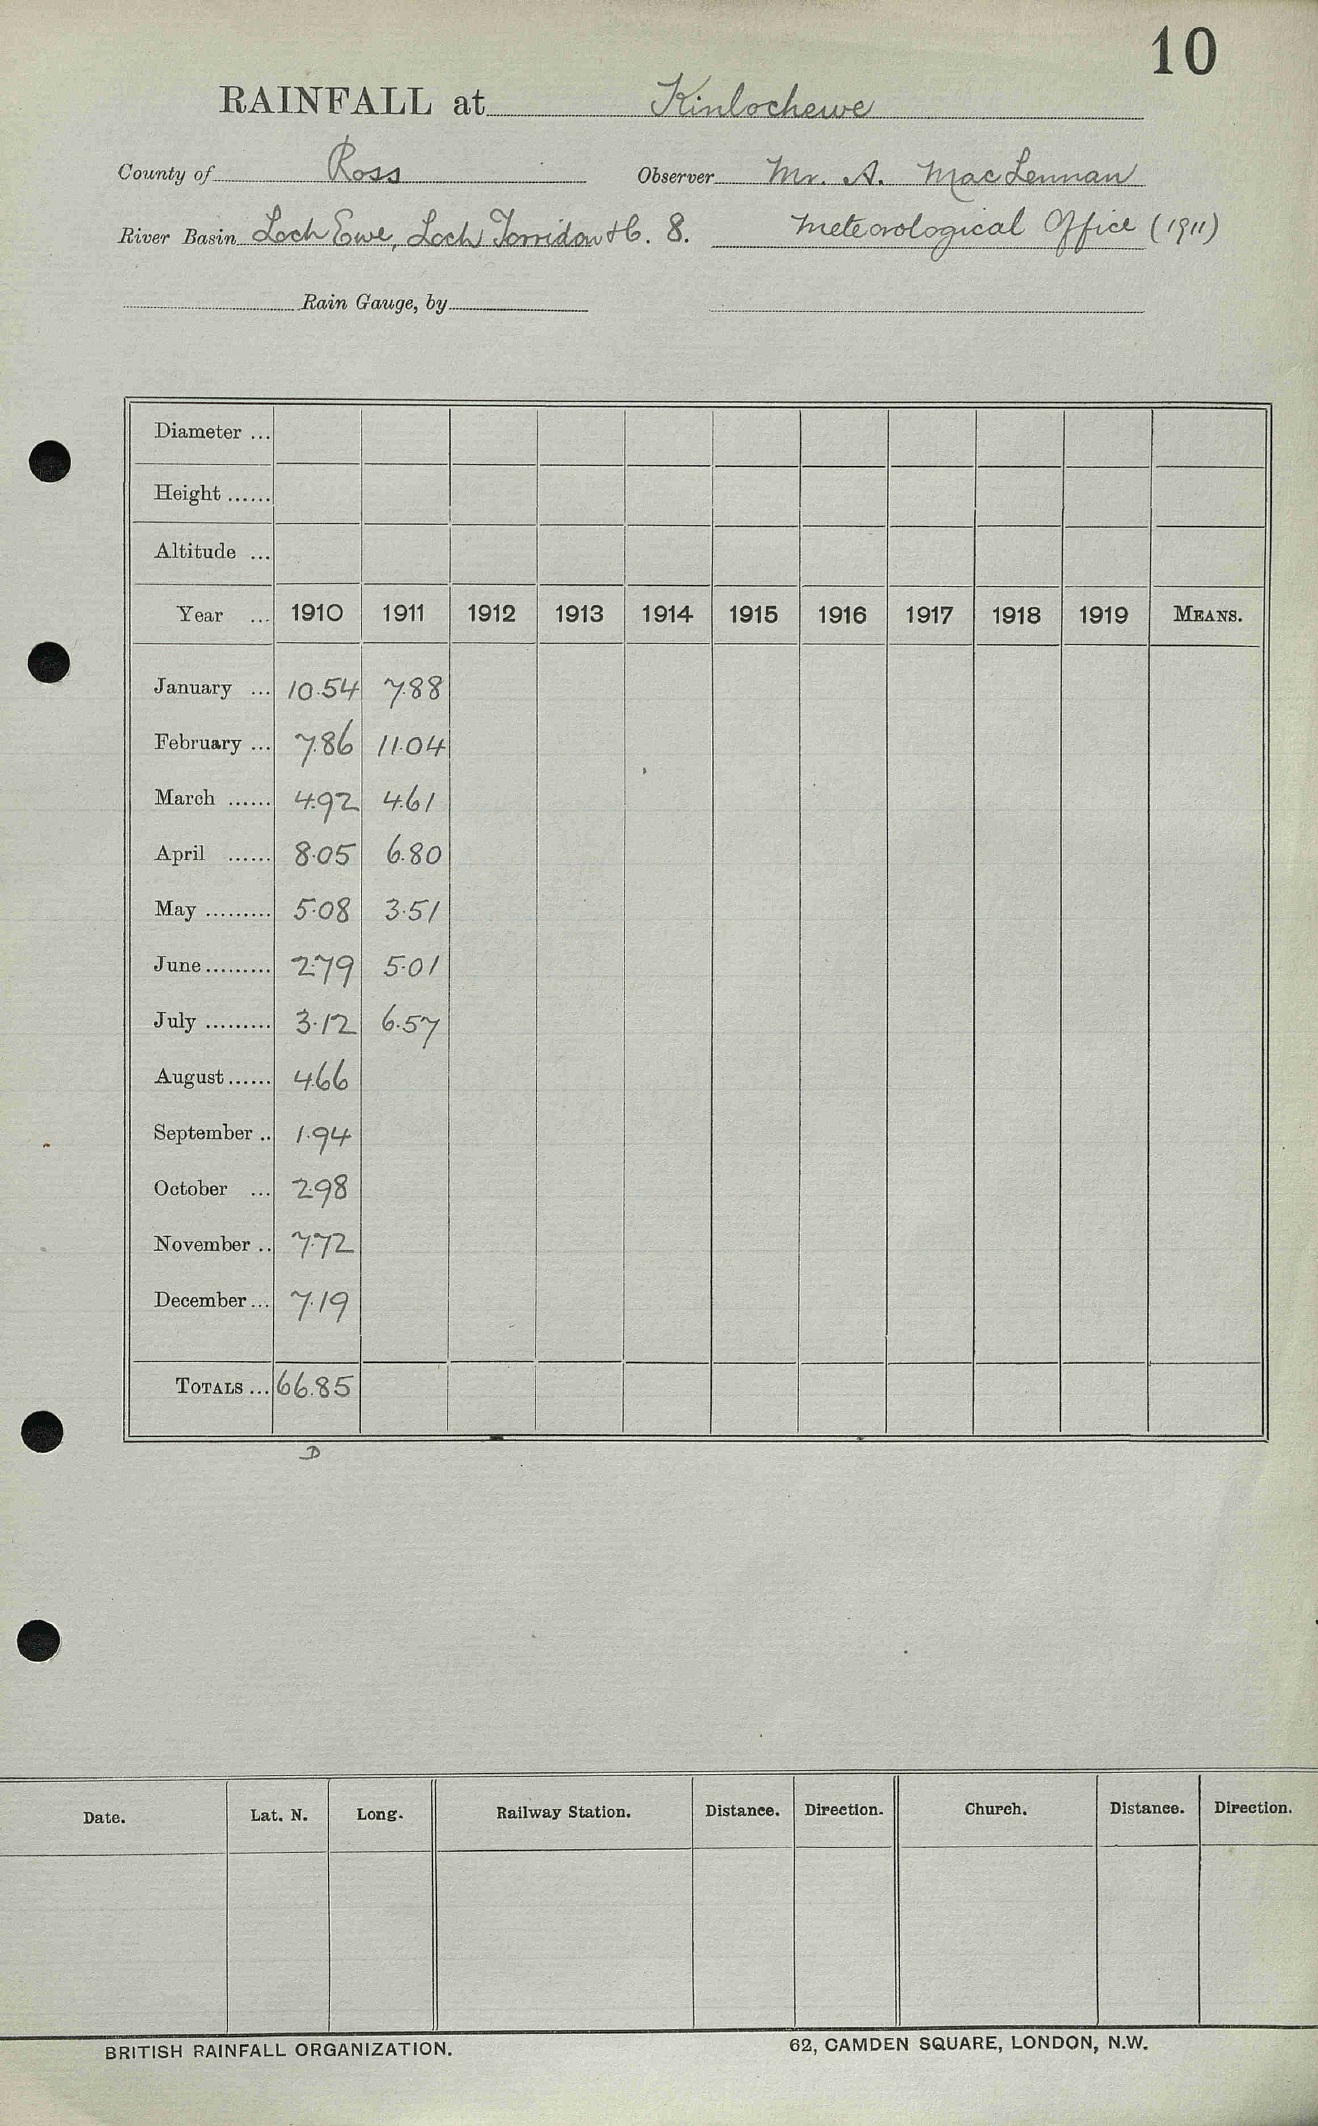 10
RAINFALL at Kinlochewe
County of Ross Observer Mr. A. MacLennan
River Basin Loch Ewe, Loch Torridon &c. 8. Meteorological Office (1911)
Rain Gauge, by
Diameter ...
Height ......
Altitude ...
Year ... 1910 1911 1912 1913 1914 1915 1916 1917 1918 1919 MEANS.
January ... 10.54 7.88
February ... 7.86 11.04
March ...... 4.92 4.61
April ...... 8.05 6.80
May ......... 5.08 3.51
June ......... 2.79 5.01
July ......... 3.12 6.57
August ...... 4.66
September .. 1.94
October ... 2.98
November .. 7.72
December ... 7.19
TOTALS ... 66.85
D
Date. Lat. N. Long. Railway Station. Distance. Direction. Church. Distance. Direction.
BRITISH RAINFALL ORGANIZATION. 62, CAMDEN SQUARE, LONDON, N.W.